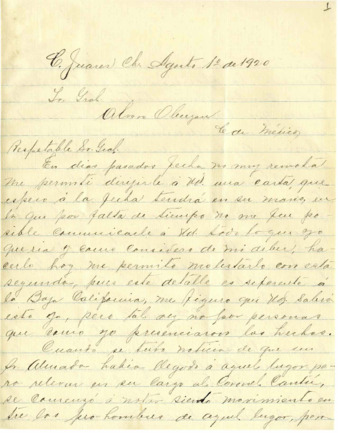 1
C. Juarez Ch. Agosto 1º de 1920
Sr. Gral
Alvaro Obregon
C de México
Respetable Sr. Gral
En dias pasados fecha no muy remota
me permití dirijirle á Ud una carta que
espero á la fecha tendrá en su mano, en
la que por falta de tiempo no me fue po
sible comunicarle á Ud todo lo que yo
queria y como considero de mi deber ha
cerlo hoy me permito molestarlo con esta
segunda, pues este detalle es referente á
la Baja California, me figuro que Ud sabrá
esto ya, pero tal vez no por personas
que como yo presenciaron los hechos.
Cuando se tubo noticia de que un
Sr Almada habia llegado á aquel lugar pa
ra relevar en su cargo al Coronel Cantú,
se comenzó á notar siendo movimiento en
tre los pro-hombres de aquel lugar, pero